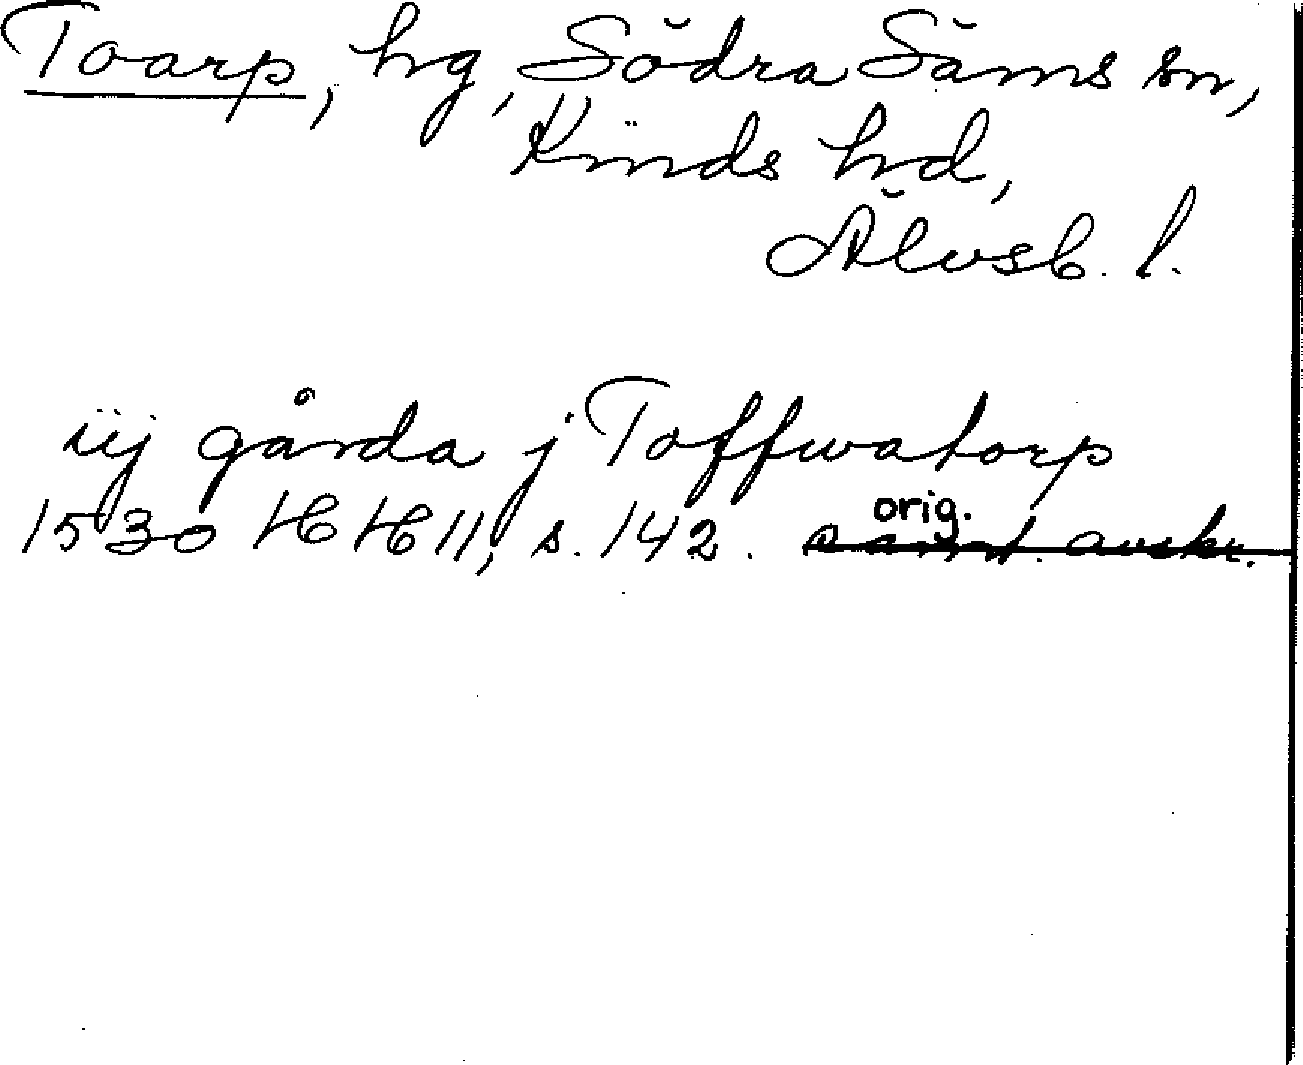 Toarp, hg, Södra Säms sn,
Kinds hd,
Älvsb. l.
iij gårda j Toffwatorp
1530 HH 11, s. 142. orig. samt. avskr.